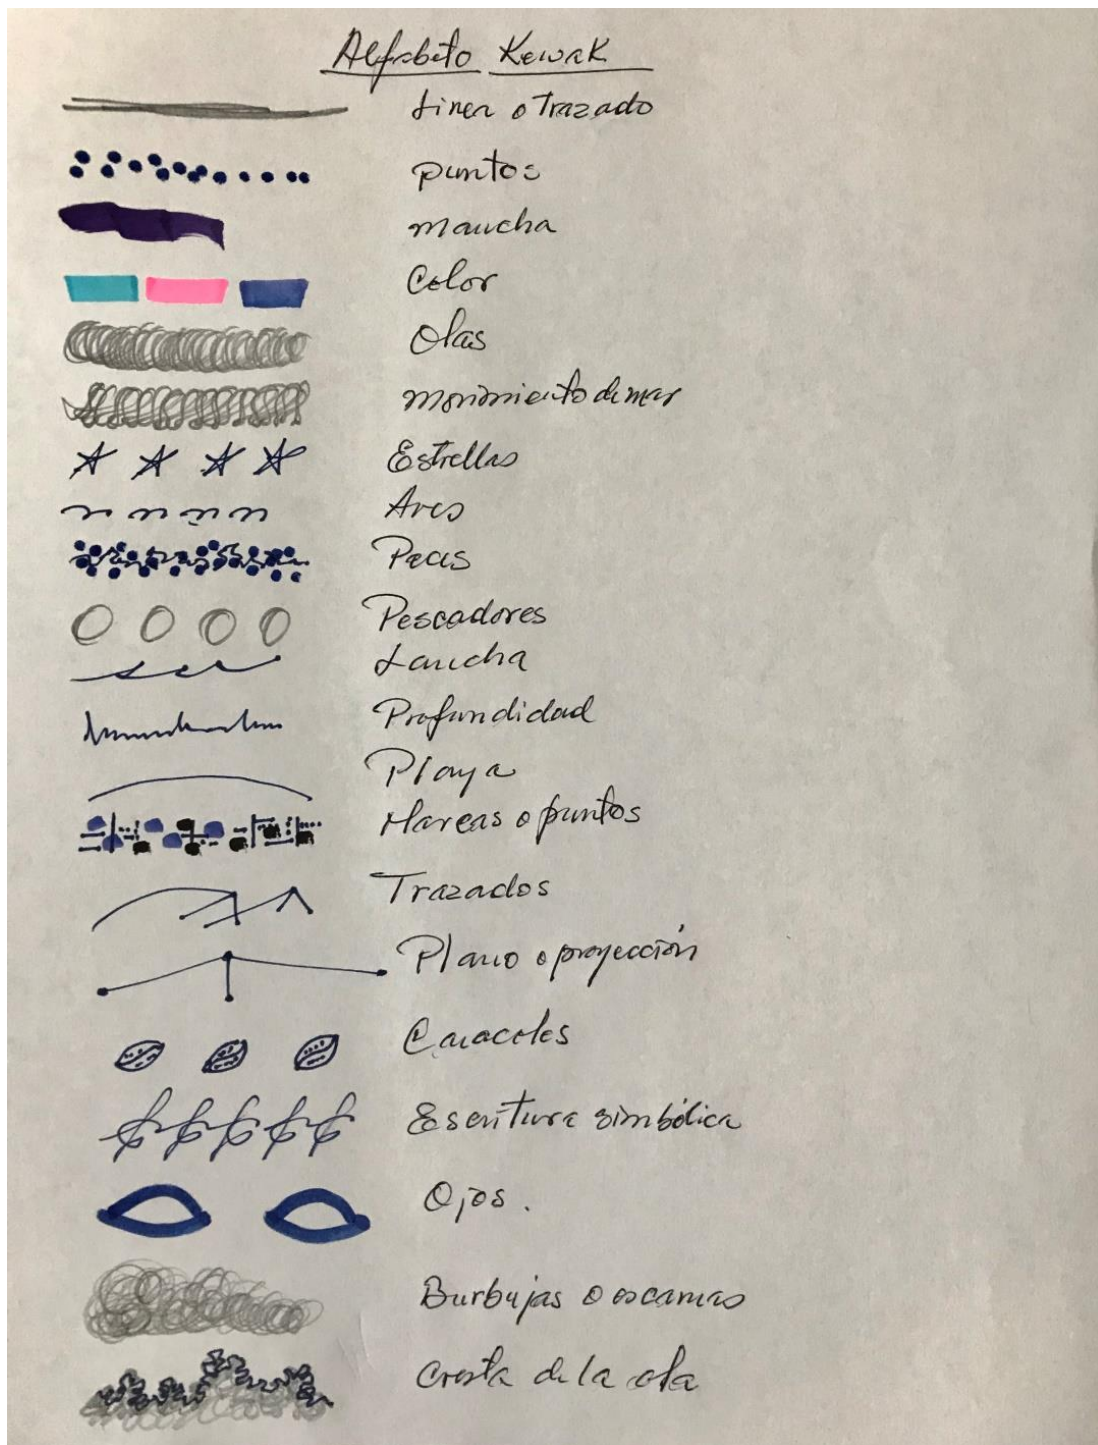 Alfabeto Kewak
Linea o Trazado
puntos
mancha
Color
Olas
movimiento de mar
Estrellas
Aves
Peces
Pescadores
Lancha
Profundidad
Playa
Mareas o puntos
Trazados
Plano o proyección
Caracoles
Escritura simbólica
Ojos.
Burbujas o escamas
Cresta de la ola